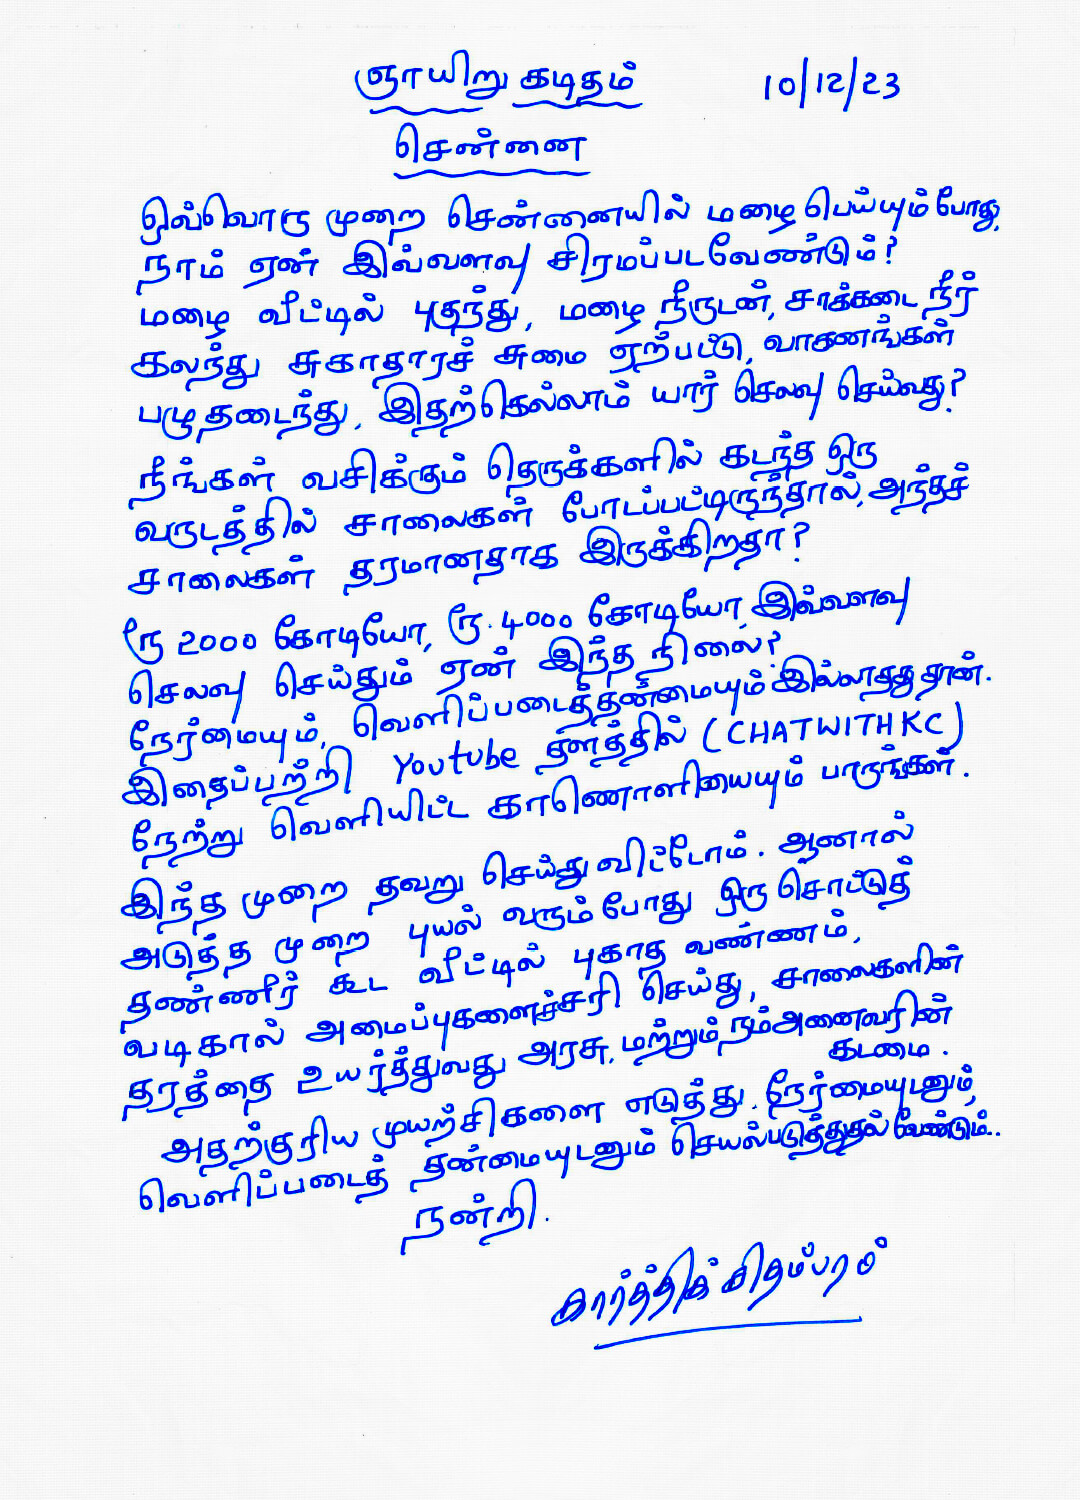 ஞாயிறு கடிதம் 10/12/23
சென்னை
ஒவ்வொரு முறை சென்னையில் மழை பெய்யும்போது,
நாம் ஏன் இவ்வளவு சிரமப்படவேண்டும்?
மழை வீட்டில் புகுந்து, மழை நீருடன், சாக்கடை நீர்
கலந்து சுகாதாரச் சுமை ஏற்பட்டு, வாகனங்கள்
பழுதடைந்து, இதற்கெல்லாம் யார் செலவு செய்வது?
நீங்கள் வசிக்கும் தெருக்களில் கடந்த ஒரு
வருடத்தில் சாலைகள் போடப்பட்டிருந்தால், அந்தச்
சாலைகள் தரமானதாக இருக்கிறதா?
ரூ 2000 கோடியோ, ரூ. 4000 கோடியோ, இவ்வளவு
செலவு செய்தும் ஏன் இந்த நிலை?
நேர்மையும், வெளிப்படைத்தன்மையும் இல்லாததுதான்.
இதைப்பற்றி Youtube தளத்தில் (CHATWITHKC)
நேற்று வெளியிட்ட காணொளியையும் பாருங்கள்.
இந்த முறை தவறு செய்து விட்டோம். ஆனால்
அடுத்த முறை புயல் வரும்போது ஒரு சொட்டுத்
தண்ணீர் கூட வீட்டில் புகாத வண்ணம்,
வடிகால் அமைப்புகளைச்சரி செய்து, சாலைகளின்
தரத்தை உயர்த்துவது அரசு, மற்றும் நம் அனைவரின்
கடமை.
அதற்குரிய முயற்சிகளை எடுத்து. நேர்மையுடனும்,
வெளிப்படைத் தன்மையுடனும் செயல்படுத்துதல் வேண்டும்..
நன்றி.
கார்த்திக் சிதம்பரம்